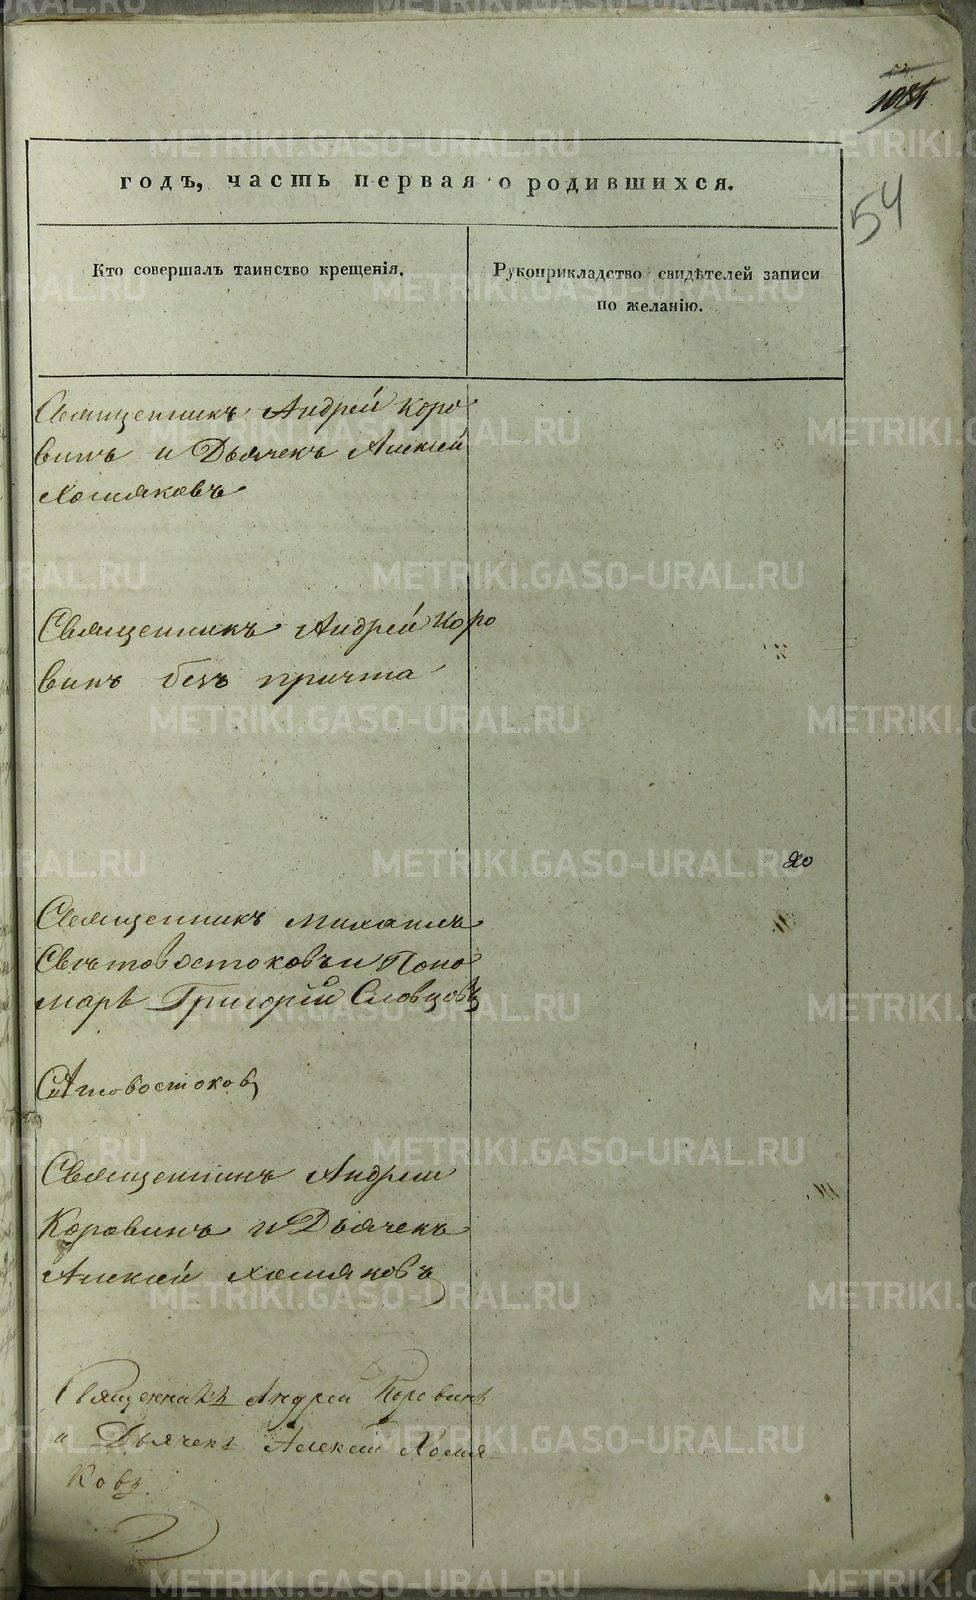 54
годъ, часть первая о родившихся.
Кто совершалъ таинство крещенія.
Рукоприкладство свидѣтелей записи
по желанію.
Священникъ Андрей Коро
винъ и Дьячекъ Алексѣй
Хомяковъ
Священникъ Андрей Коро
винъ безъ причта
Священникъ Михаилъ
Свѣтовостоковъ и Поно
марь Григорій Словцовъ
Святовостоковъ
Священникъ Андрей
Коровинъ и Дьячекъ
Алексѣй Хомяковъ
Священникъ Андрей Коровинъ
и Дьячекъ Алексѣй Хомя
ковъ.
METRIKI.GASO-URAL.RU